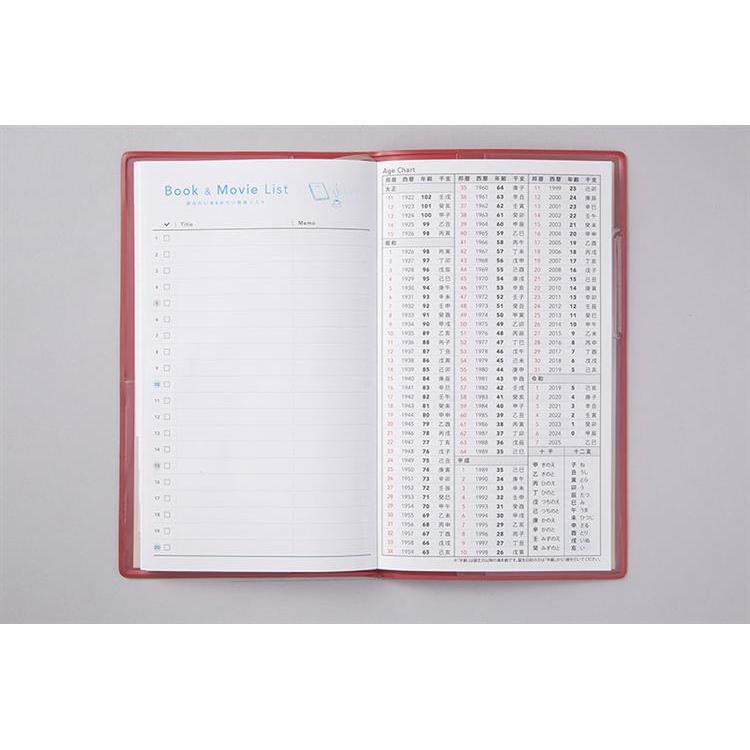 Book & Movie List
✓ Title Memo
1
2
3
4
5
6
7
8
9
10
11
12
13
14
15
16
17
18
19
20
Age Chart
邦暦 西暦 年齢 干支
大正
11 1922 102 壬戌
12 1923 101 癸亥
13 1924 100 甲子
14 1925 99 乙丑
15 1926 98 丙寅
昭和
1 1926 98 丙寅
2 1927 97 丁卯
3 1928 96 戊辰
4 1929 95 己巳
5 1930 94 庚午
6 1931 93 辛未
7 1932 92 壬申
8 1933 91 癸酉
9 1934 90 甲戌
10 1935 89 乙亥
11 1936 88 丙子
12 1937 87 丁丑
13 1938 86 戊寅
14 1939 85 己卯
15 1940 84 庚辰
16 1941 83 辛巳
17 1942 82 壬午
18 1943 81 癸未
19 1944 80 甲申
20 1945 79 乙酉
21 1946 78 丙戌
22 1947 77 丁亥
23 1948 76 戊子
24 1949 75 己丑
25 1950 74 庚寅
26 1951 73 辛卯
27 1952 72 壬辰
28 1953 71 癸巳
29 1954 70 甲午
30 1955 69 乙未
31 1956 68 丙申
32 1957 67 丁酉
33 1958 66 戊戌
34 1959 65 己亥
邦暦 西暦 年齢 干支
35 1960 64 庚子
36 1961 63 辛丑
37 1962 62 壬寅
38 1963 61 癸卯
39 1964 60 甲辰
40 1965 59 乙巳
41 1966 58 丙午
42 1967 57 丁未
43 1968 56 戊申
44 1969 55 己酉
45 1970 54 庚戌
46 1971 53 辛亥
47 1972 52 壬子
48 1973 51 癸丑
49 1974 50 甲寅
50 1975 49 乙卯
51 1976 48 丙辰
52 1977 47 丁巳
53 1978 46 戊午
54 1979 45 己未
55 1980 44 庚申
56 1981 43 辛酉
57 1982 42 壬戌
58 1983 41 癸亥
59 1984 40 甲子
60 1985 39 乙丑
61 1986 38 丙寅
62 1987 37 丁卯
63 1988 36 戊辰
64 1989 35 己巳
平成
1 1989 35 己巳
2 1990 34 庚午
3 1991 33 辛未
4 1992 32 壬申
5 1993 31 癸酉
6 1994 30 甲戌
7 1995 29 乙亥
8 1996 28 丙子
9 1997 27 丁丑
10 1998 26 戊寅
邦暦 西暦 年齢 干支
11 1999 25 己卯
12 2000 24 庚辰
13 2001 23 辛巳
14 2002 22 壬午
15 2003 21 癸未
16 2004 20 甲申
17 2005 19 乙酉
18 2006 18 丙戌
19 2007 17 丁亥
20 2008 16 戊子
21 2009 15 己丑
22 2010 14 庚寅
23 2011 13 辛卯
24 2012 12 壬辰
25 2013 11 癸巳
26 2014 10 甲午
27 2015 9 乙未
28 2016 8 丙申
29 2017 7 丁酉
30 2018 6 戊戌
31 2019 5 己亥
令和
1 2019 5 己亥
2 2020 4 庚子
3 2021 3 辛丑
4 2022 2 壬寅
5 2023 1 癸卯
6 2024 0 甲辰
7 2025 乙巳
十干
甲 きのえ
乙 きのと
丙 ひのえ
丁 ひのと
戊 つちのえ
己 つちのと
庚 かのえ
辛 かのと
壬 みずのえ
癸 みずのと
十二支
子 ね
丑 うし
寅 とら
卯 う
辰 たつ
巳 み
午 うま
未 ひつじ
申 さる
酉 とり
戌 いぬ
亥 い